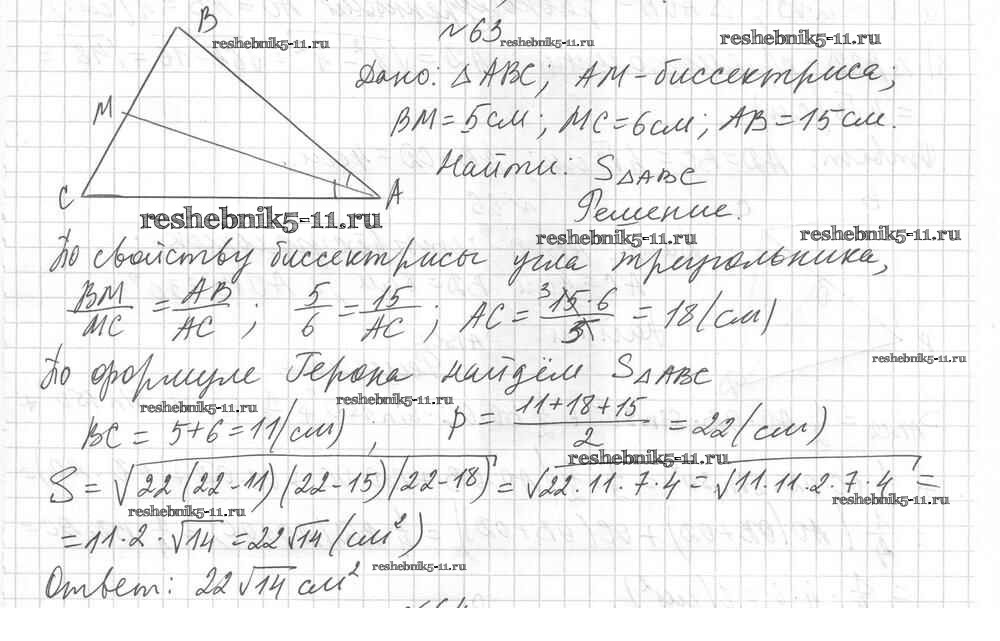 B
№63
reshebnik5-11.ru
reshebnik5-11.ru
reshebnik5-11.ru
Дано: △ABC; AM - биссектриса;
M
BM = 5 см; MC = 6 см; AB = 15 см.
Найти: S△ABC
C
A
Решение.
reshebnik5-11.ru
reshebnik5-11.ru
reshebnik5-11.ru
По свойству биссектрисы угла треугольника,
BM/MC = AB/AC; 5/6 = 15/AC; AC = 15·6/5 = 18 (см)
3
reshebnik5-11.ru
По формуле Герона найдём S△ABC
reshebnik5-11.ru
reshebnik5-11.ru
BC = 5+6 = 11 (см); p = (11+18+15)/2 = 22 (см)
reshebnik5-11.ru
S = √22(22-11)(22-15)(22-18) = √22·11·7·4 = √11·11·2·7·4 =
reshebnik5-11.ru
reshebnik5-11.ru
= 11·2·√14 = 22√14 (см²)
reshebnik5-11.ru
Ответ: 22√14 см²